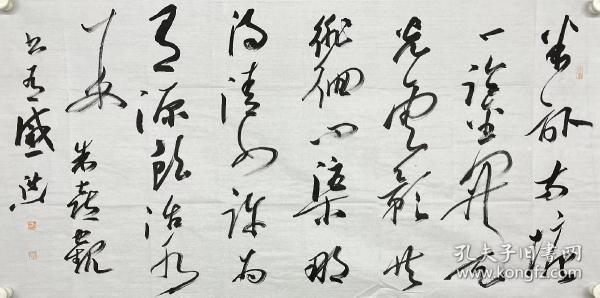 半畝方塘
一鑑開天
光雲影共
徘徊问渠那
得清如許為
有源頭活水
来 朱熹觀
书有感
孔夫子旧书网
www.kongfz.com